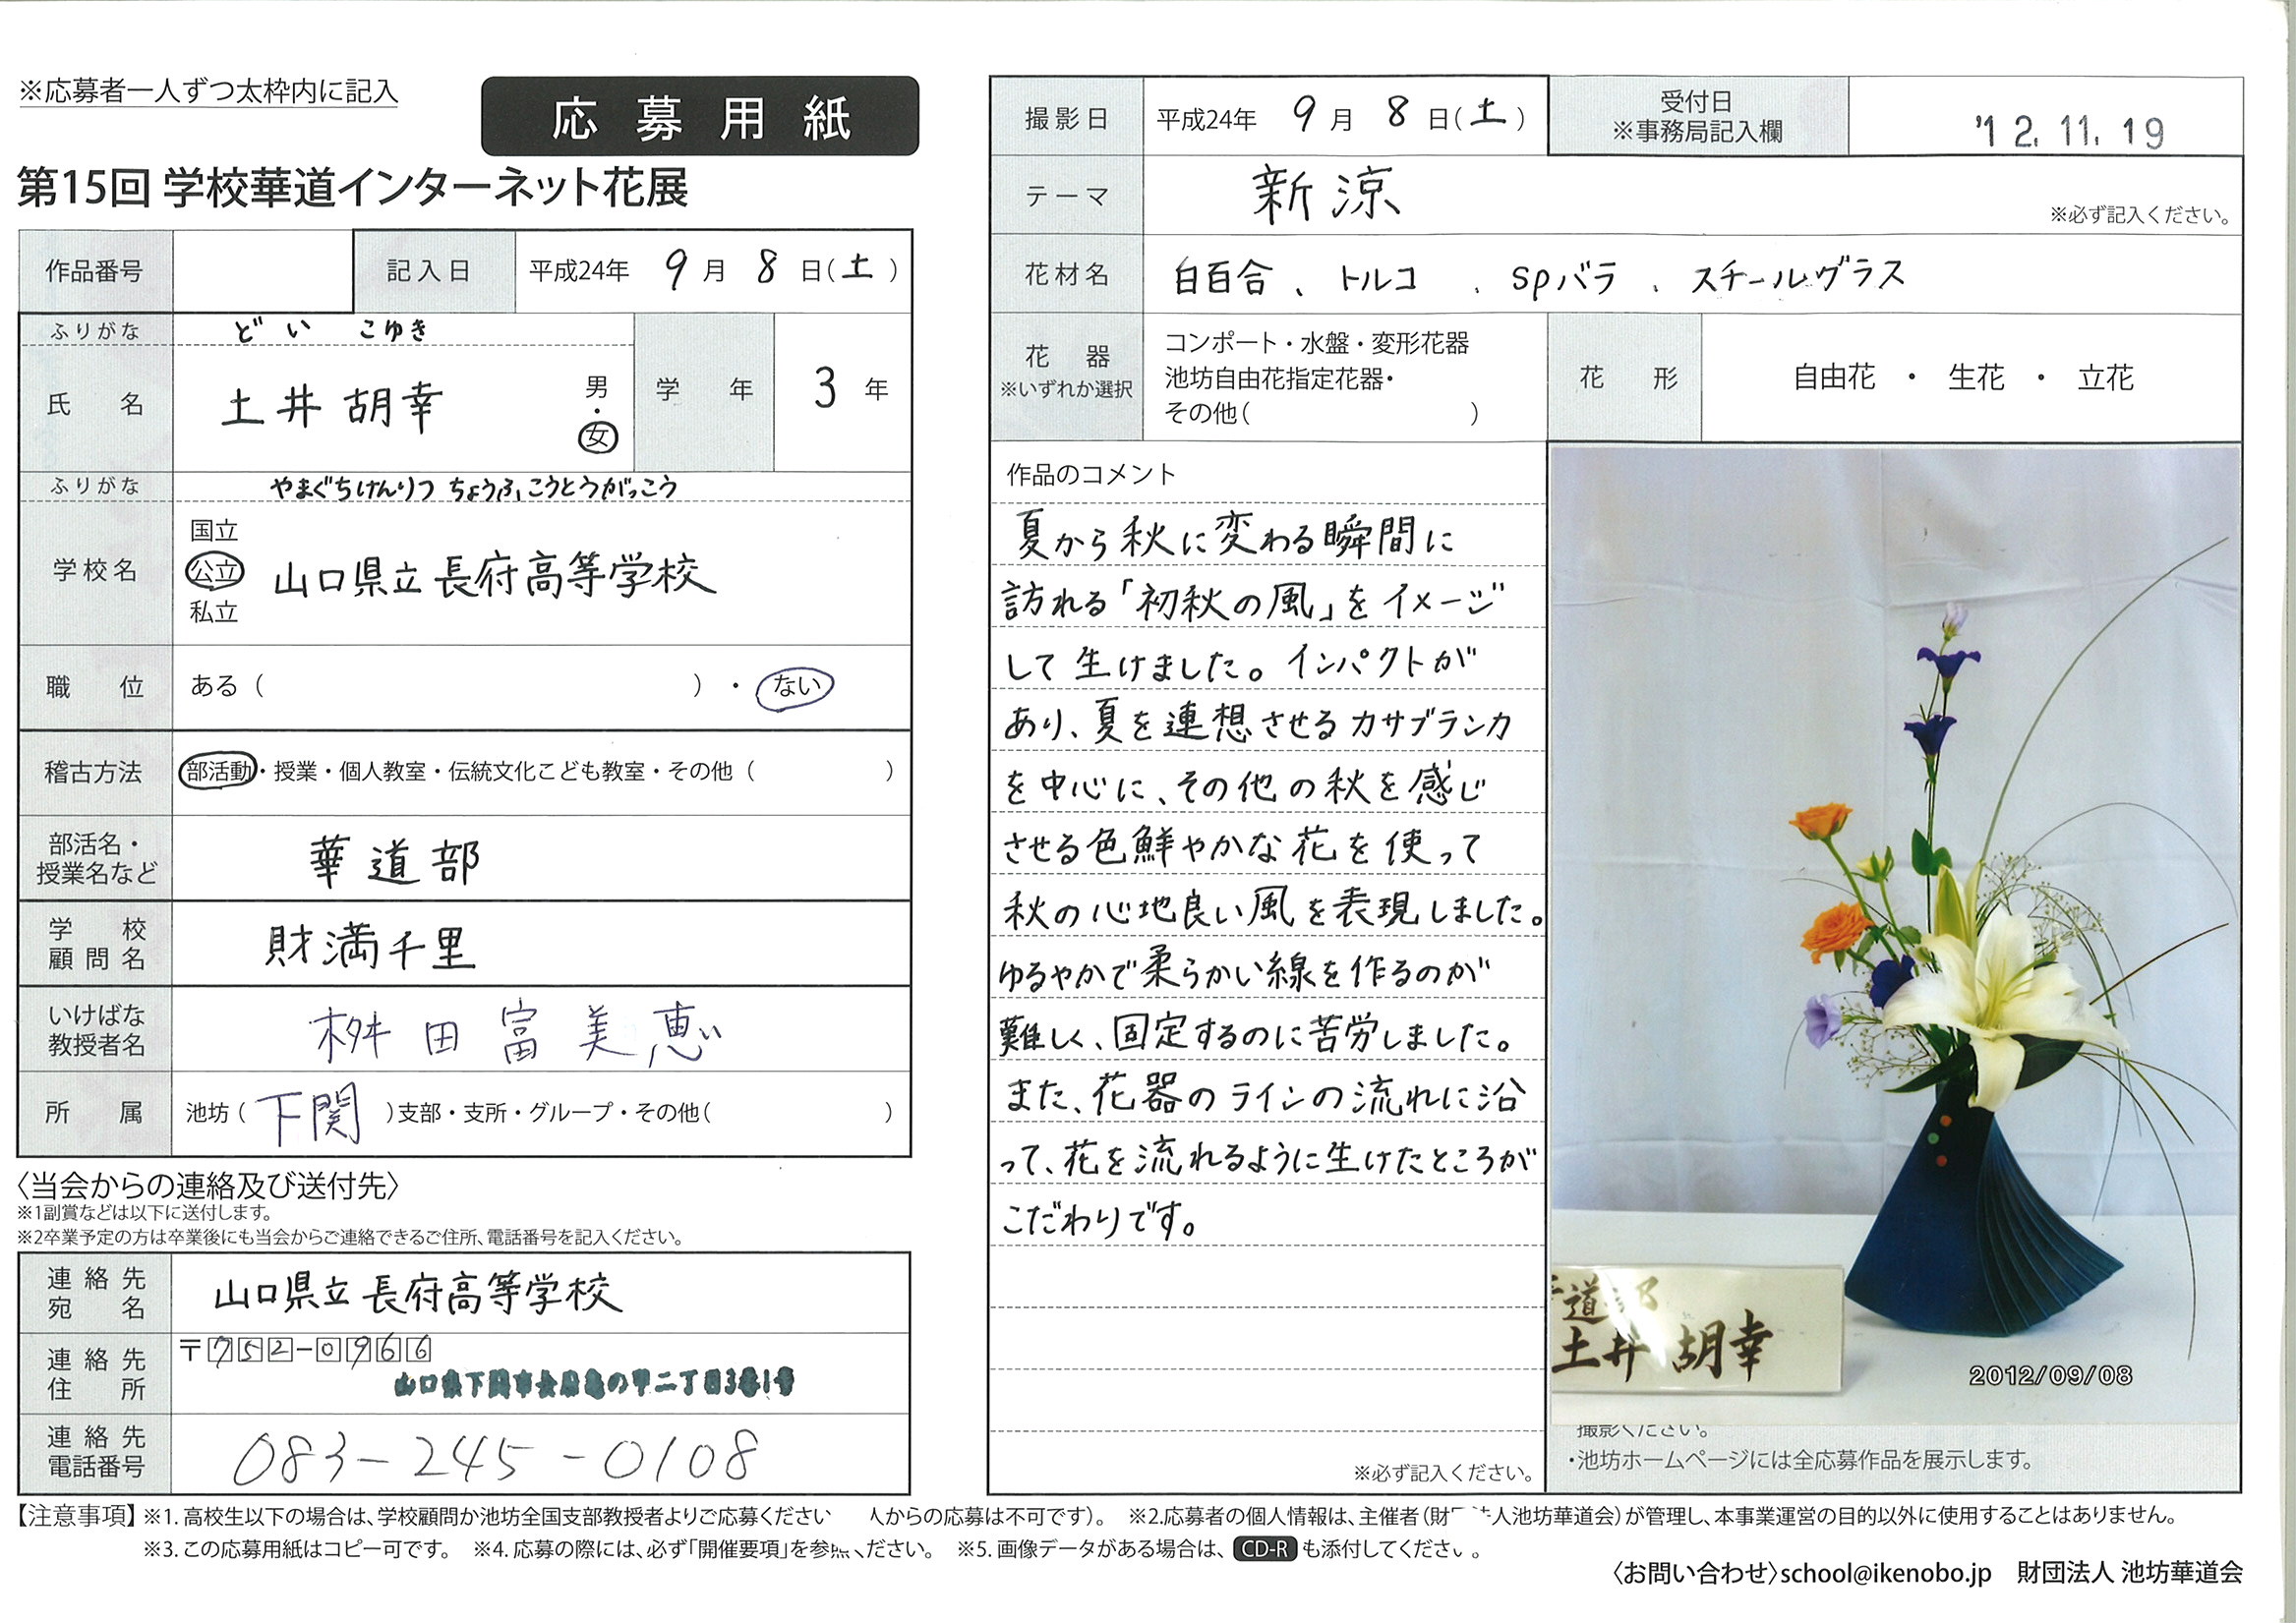 ※応募者一人ずつ太枠内に記入
応募用紙
第15回 学校華道インターネット花展
作品番号
記入日 平成24年 9月 8日(土)
ふりがな どい こゆき
氏名 土井 胡幸 男・女
学年 3年
ふりがな やまぐちけんりつ ちょうふこうとうがっこう
学校名 国立 公立 私立 山口県立長府高等学校
職位 ある( )・ない
稽古方法 部活動・授業・個人教室・伝統文化こども教室・その他( )
部活名・授業名など 華道部
学校顧問名 財満千里
いけばな教授者名 桝田富美恵
所属 池坊(下関)支部・支所・グループ・その他( )
〈当会からの連絡及び送付先〉
※1副賞などは以下に送付します。
※2卒業予定の方は卒業後にも当会からご連絡できるご住所、電話番号を記入ください。
連絡先宛名 山口県立長府高等学校
連絡先住所 〒752-0966
山口県下関市長府亀の甲二丁目3番1号
連絡先電話番号 083-245-0108
撮影日 平成24年 9月 8日(土)
受付日 ※事務局記入欄 '12.11.19
テーマ 新涼 ※必ず記入ください。
花材名 白百合、トルコ、spバラ、スチールグラス
花器 ※いずれか選択
コンポート・水盤・変形花器
池坊自由花指定花器・
その他( )
花形 自由花・生花・立花
作品のコメント
夏から秋に変わる瞬間に
訪れる「初秋の風」をイメージ
して生けました。インパクトが
あり、夏を連想させるカサブランカ
を中心に、その他の秋を感じ
させる色鮮やかな花を使って
秋の心地良い風を表現しました。
ゆるやかで柔らかい線を作るのが
難しく、固定するのに苦労しました。
また、花器のラインの流れに沿
って、花を流れるように生けたところが
こだわりです。
※必ず記入ください。
道部
土井 胡幸
2012/09/08
撮影ください。
・池坊ホームページには全応募作品を展示します。
【注意事項】※1. 高校生以下の場合は、学校顧問か池坊全国支部教授者よりご応募ください 人からの応募は不可です)。 ※2.応募者の個人情報は、主催者(財 人池坊華道会)が管理し、本事業運営の目的以外に使用することはありません。
※3. この応募用紙はコピー可です。 ※4. 応募の際には、必ず「開催要項」を参照ください。 ※5. 画像データがある場合は、CD-Rも添付してください。
〈お問い合わせ〉school@ikenobo.jp 財団法人 池坊華道会